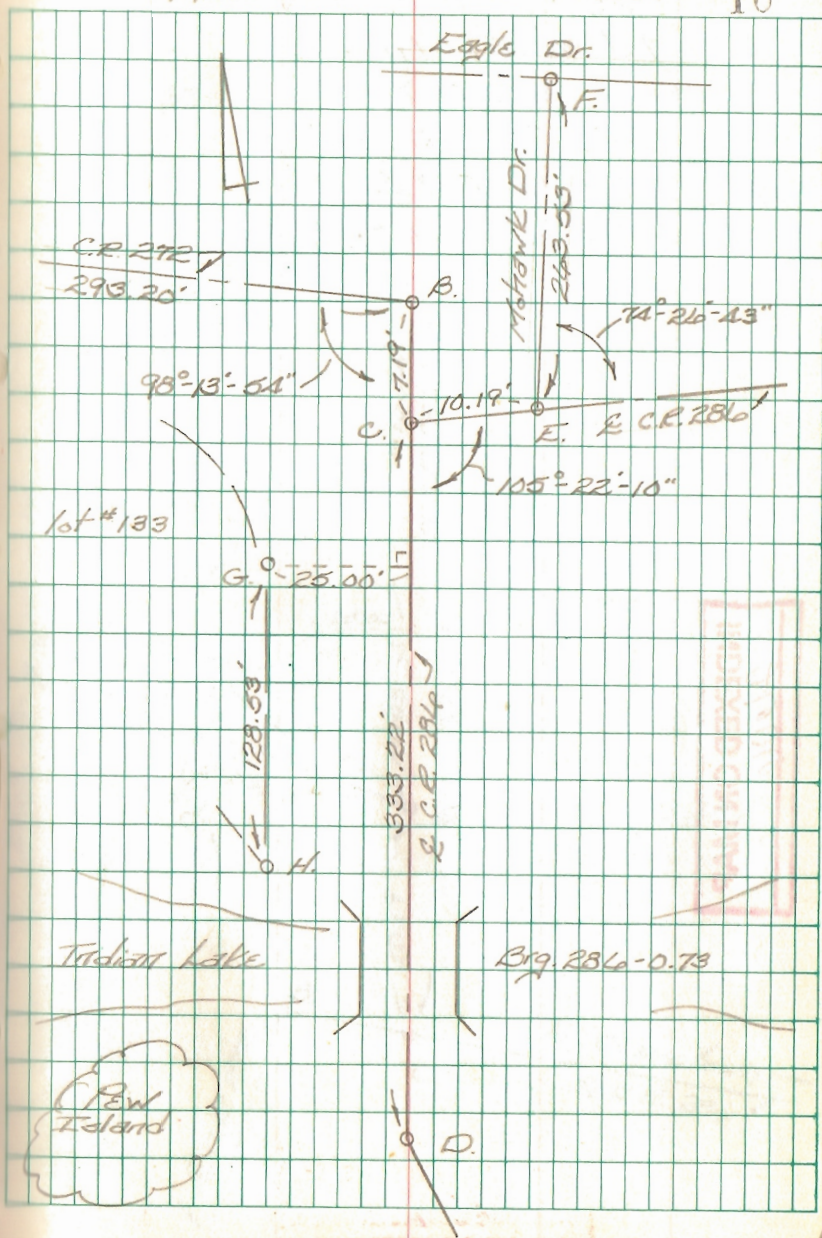 10
Eagle Dr.
F.
Mohawk Dr.
263.53'
C.R. 272
293.20'
B.
74°-26'-43"
7.19'
98°-13'-54"
10.19'
C.
E.
℄ C.R. 286
105°-22'-10"
lot #133
G.
25.00'
128.53'
333.22'
℄ C.R. 286
INDEXED ON MAP
H.
Indian Lake
Brg. 286-0.73
Pew
Island
D.